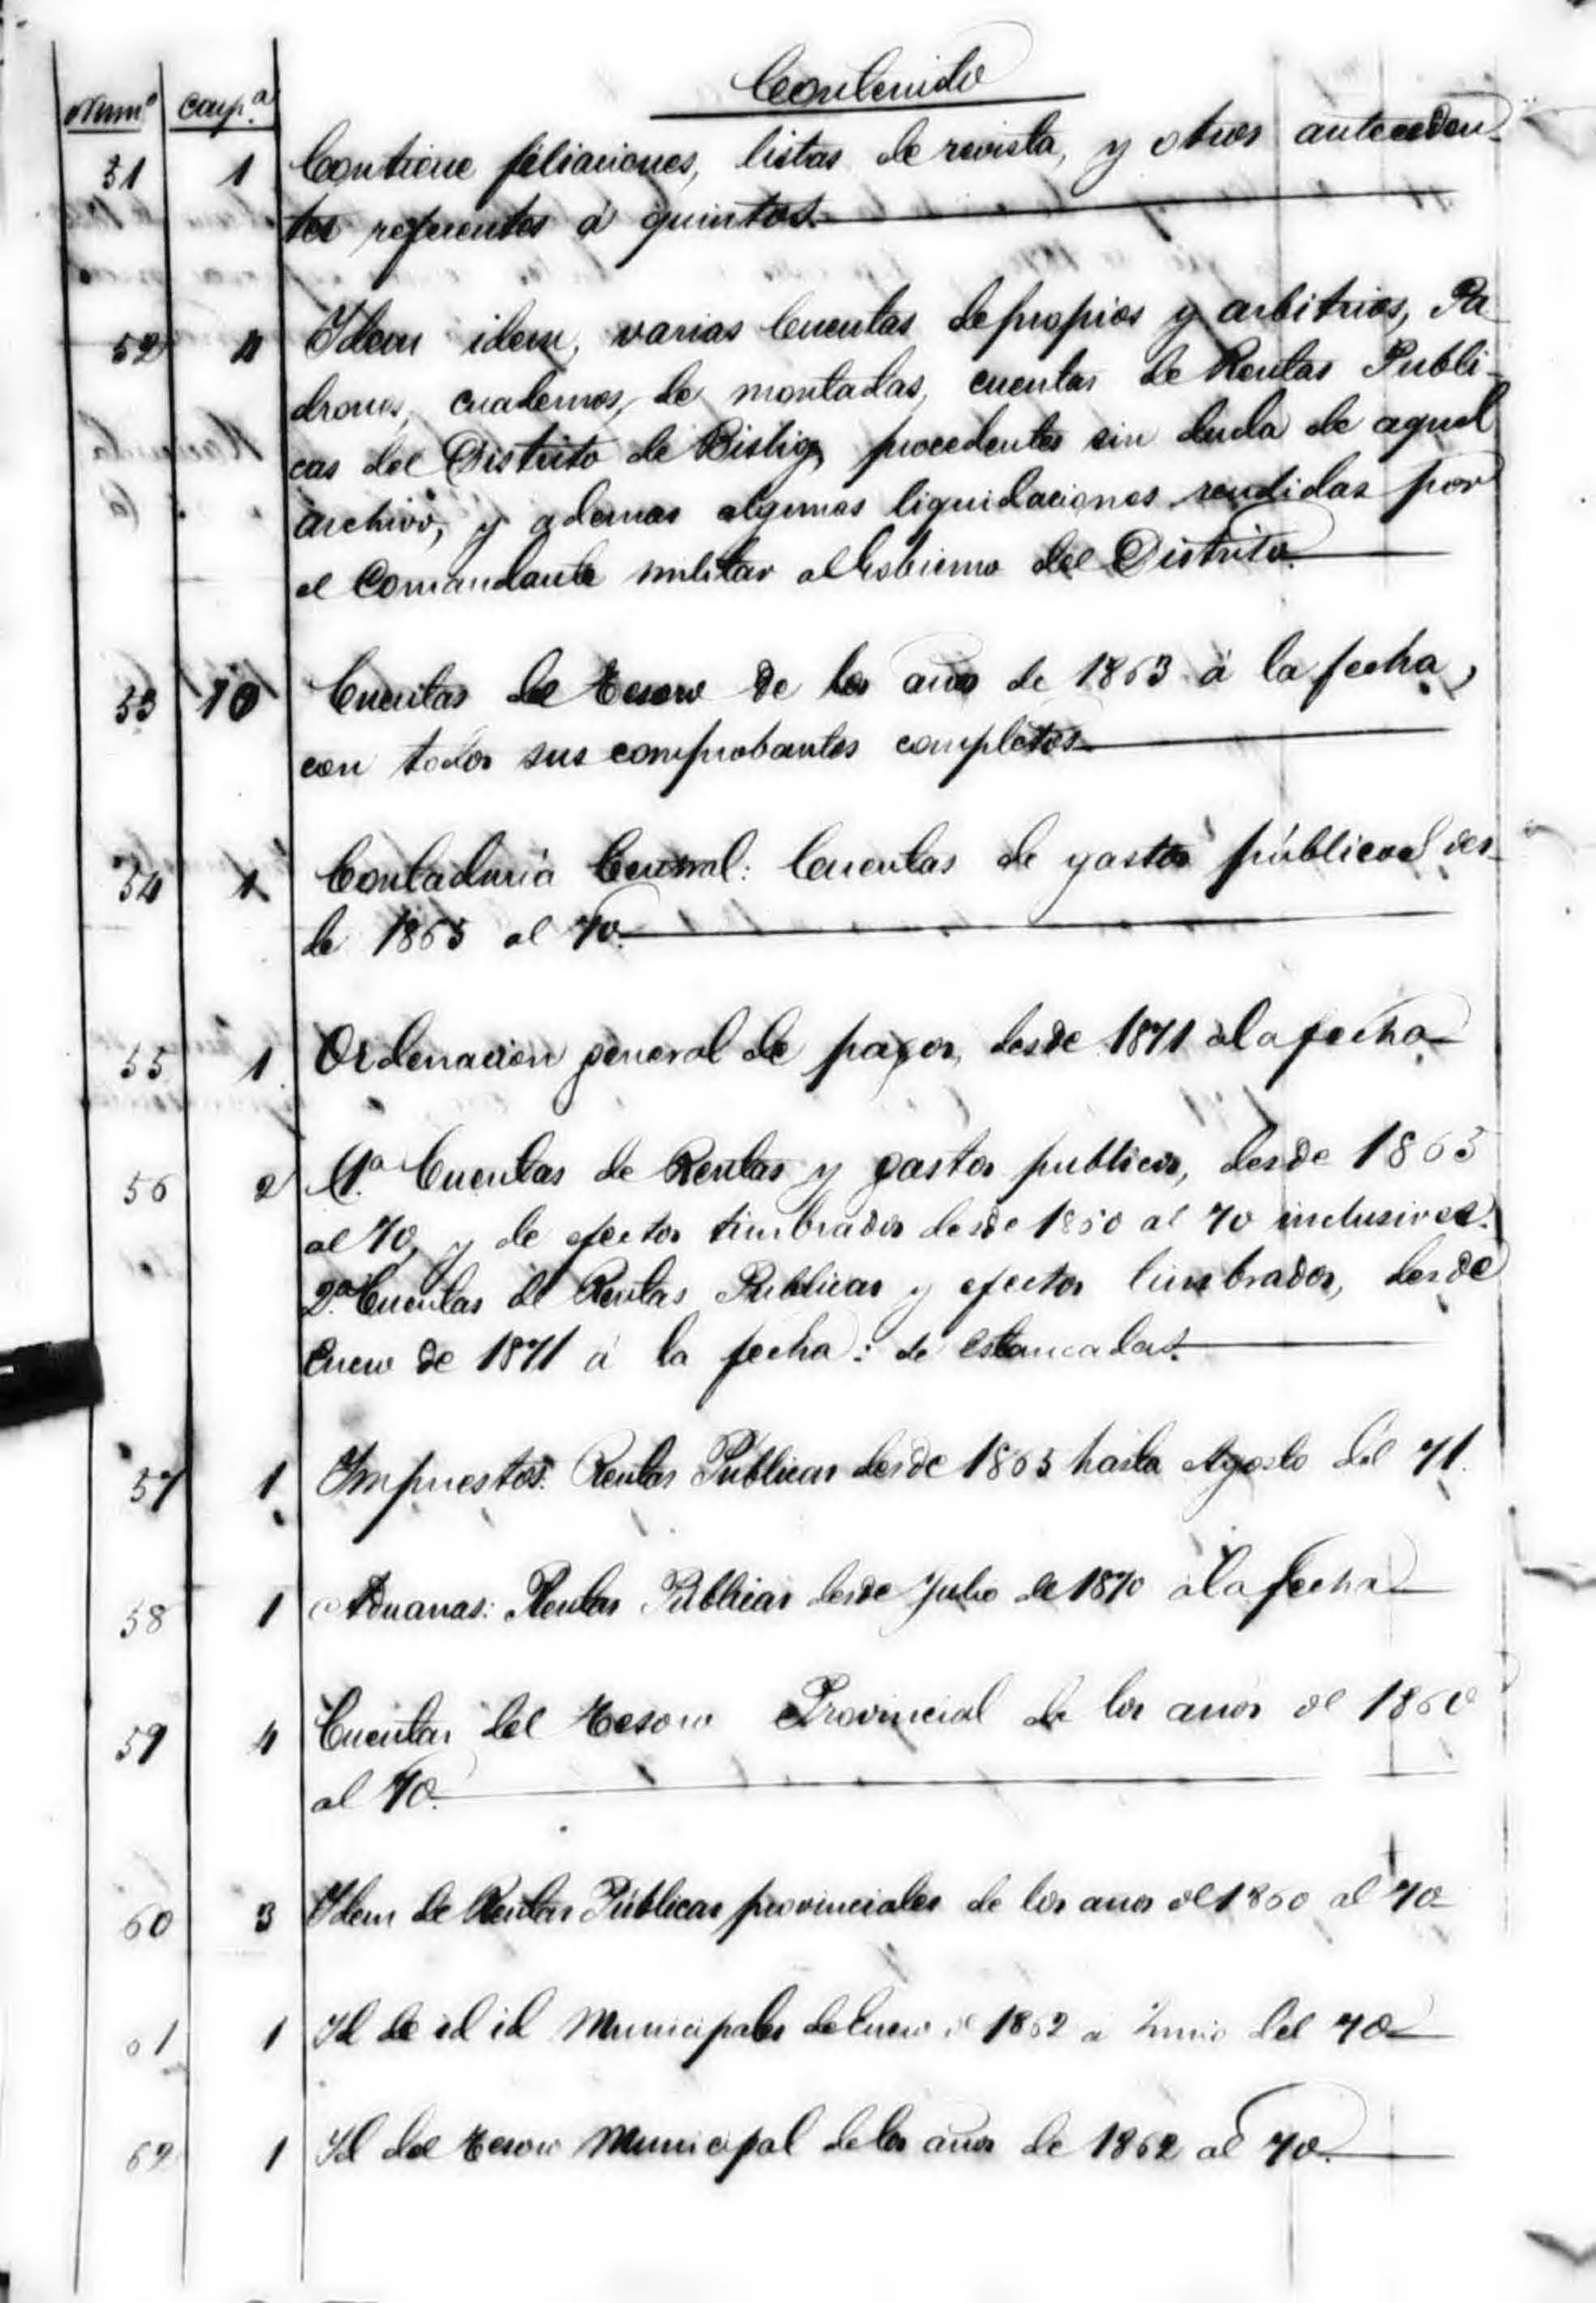 Contenido
Num.º Carp.ª
51 1 Contiene filiaciones, listas de revista, y otros anteceden-
tes referentes á quintos.
52 4 Idem idem, varias Cuentas de propios y arbitrios, Pa-
drones, cuadernos, de montadas, cuentas de Rentas Publi-
cas del Distrito de Bislig, procedentes sin duda de aquel
archivo, y ademas algunas liquidaciones rendidas por
el Comandante militar al Gobierno del Distrito.
53 10 Cuentas del Tesoro de los años de 1863 á la fecha,
con todos sus comprobantes completos.
54 1 Contaduría Central: Cuentas de gastos públicos des-
de 1865 al 70.
55 1 Ordenacion general de pagos, desde 1871 á la fecha
56 2 1.ª Cuentas de Rentas y gastos publicos, desde 1865
al 70, y de efectos timbrados desde 1860 al 70 inclusives.
2.ª Cuentas de Rentas Publicas y efectos timbrados, desde
Enero de 1871 á la fecha: de estancadas.
57 1 Impuestos. Rentas Públicas desde 1865 hasta Agosto del 71.
58 1 Aduanas: Rentas Públicas desde Julio de 1870 á la fecha
59 4 Cuentas del Tesoro Provincial de los años de 1860
al 70.
60 3 Idem de Rentas Públicas provinciales de los años de 1860 al 70
61 1 Id de id id Municipales de Enero de 1862 a Junio del 70
62 1 Id del Tesoro Municipal de los años de 1862 al 70.